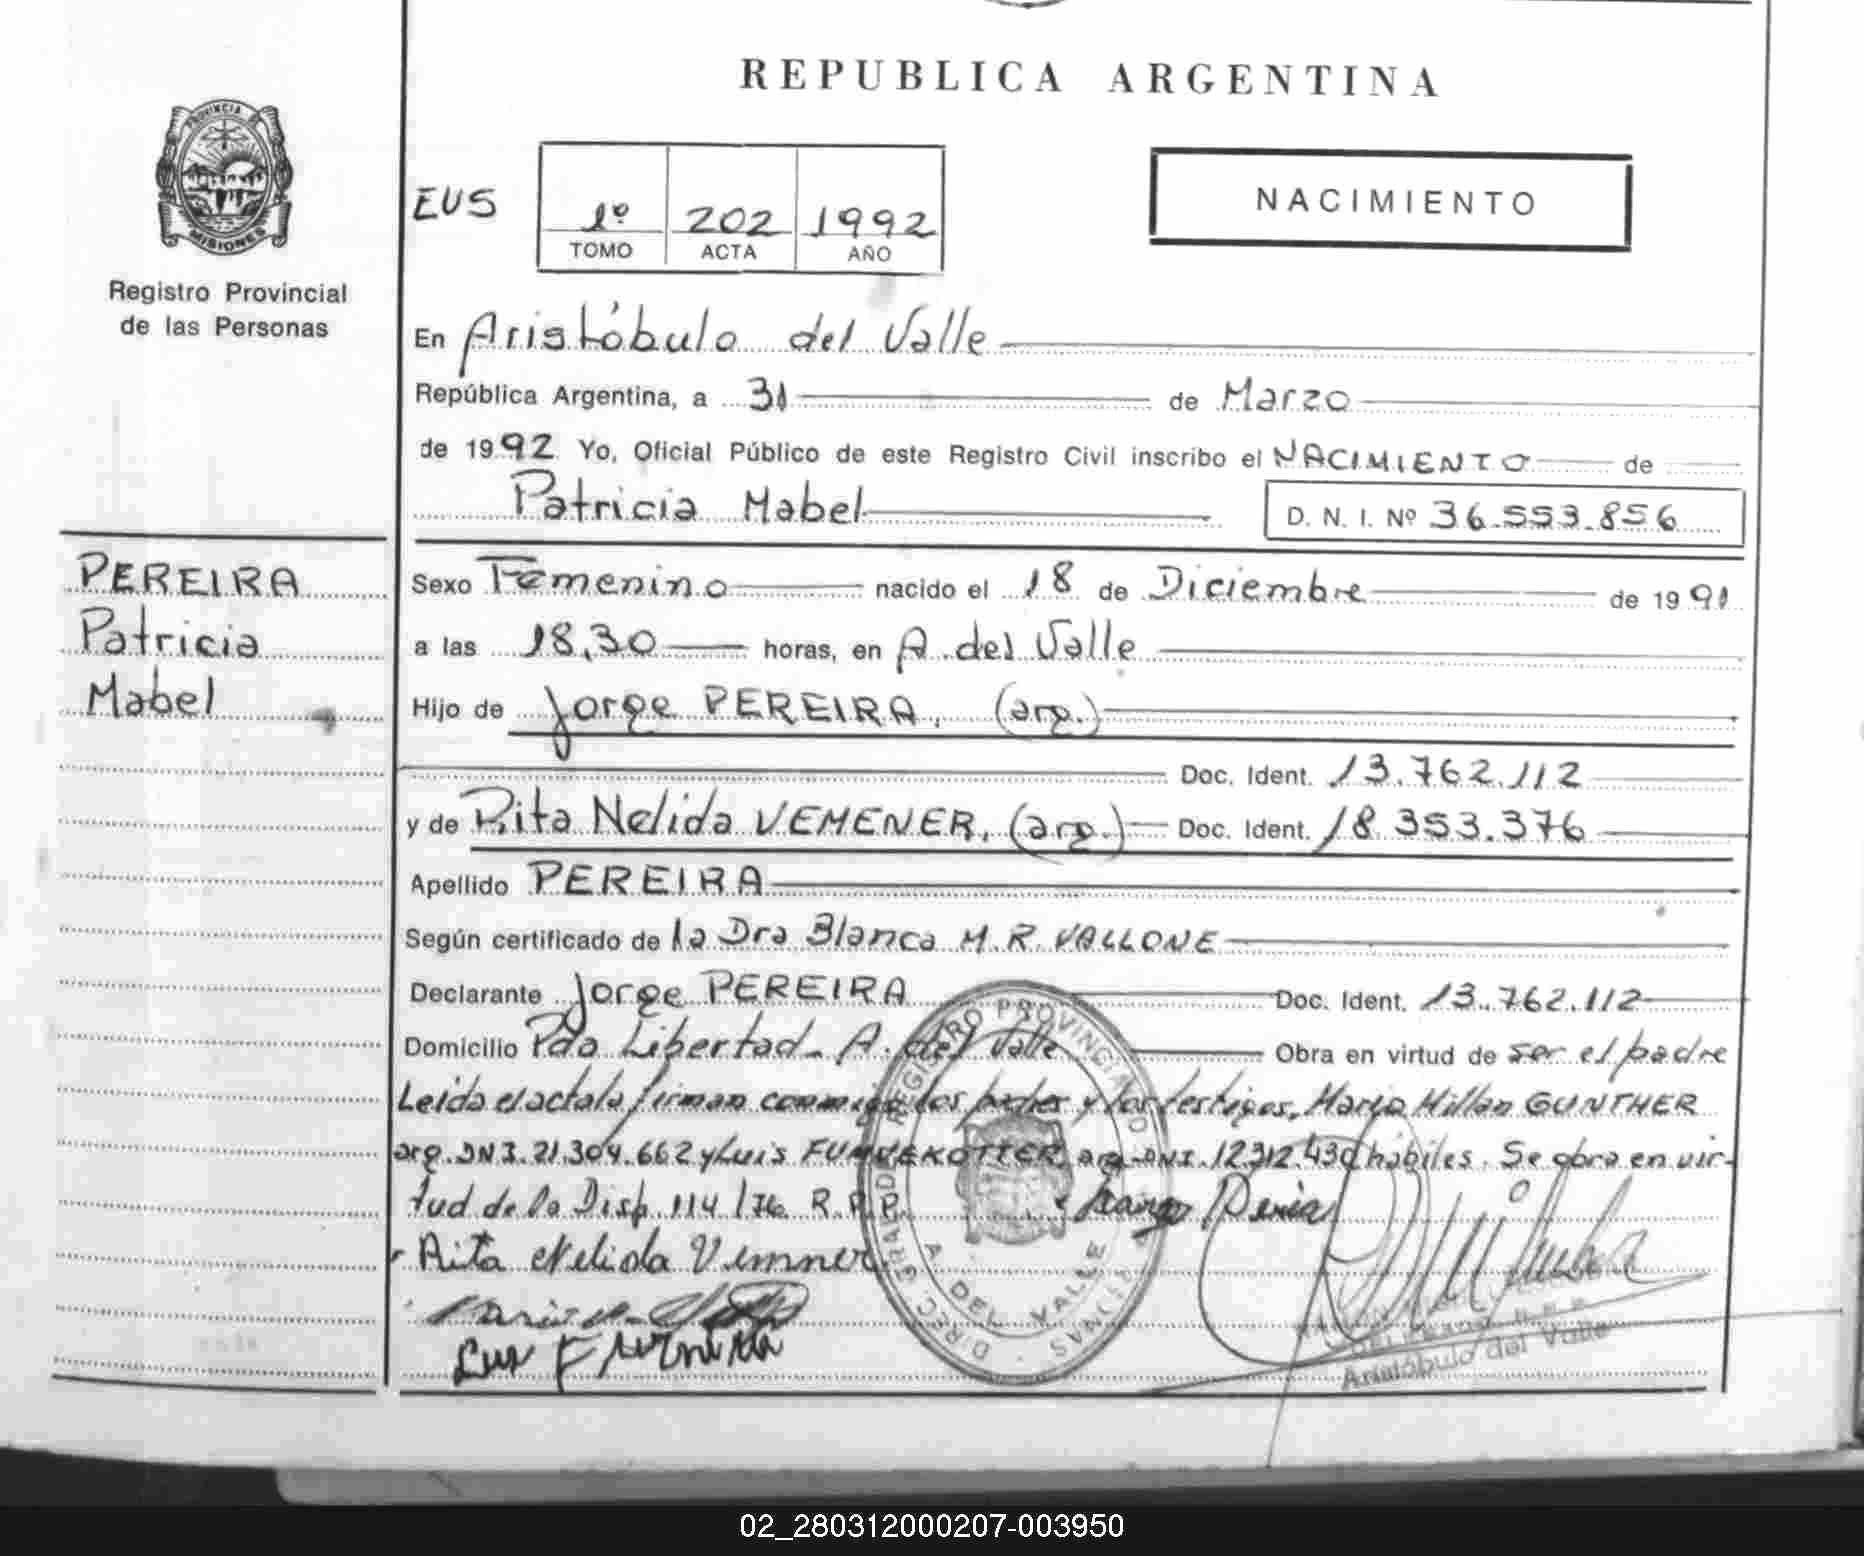 REPUBLICA ARGENTINA
PROVINCIA DE
MISIONES
Registro Provincial
de las Personas
EUS
1º 202 1992
TOMO ACTA AÑO
NACIMIENTO
En Aristóbulo del Valle
República Argentina, a 31 de Marzo
de 1992 Yo, Oficial Público de este Registro Civil inscribo el NACIMIENTO de
Patricia Mabel
D. N. I. Nº 36.553.856
PEREIRA
Patricia
Mabel
Sexo Femenino nacido el 18 de Diciembre de 1991
a las 18,30 horas, en A. del Valle
Hijo de Jorge PEREIRA, (arg.)
Doc. Ident. 13.762.112
y de Rita Nelida VEMENER, (arg.) Doc. Ident. 18.353.376
Apellido PEREIRA
Según certificado de la Dra Blanca M. R. VALLONE
Declarante Jorge PEREIRA Doc. Ident. 13.762.112
Domicilio Pdo Libertad - A. del Valle Obra en virtud de ser el padre
Leida el acta la firman conmigo los padres y los testigos, Mario Millan GUNTHER
arg. DNI. 21.304.662 y Luis FUNDEKOTTER, arg. DNI. 12.312.430 hábiles. Se obra en vir-
tud de la Disp. 114/76 R.P.P.
Rita Nelida Vemner
Luis
REGISTRO PROVINCIAL DE LAS PERSONAS
A. DEL VALLE
Aristóbulo del Valle
02_280312000207-003950